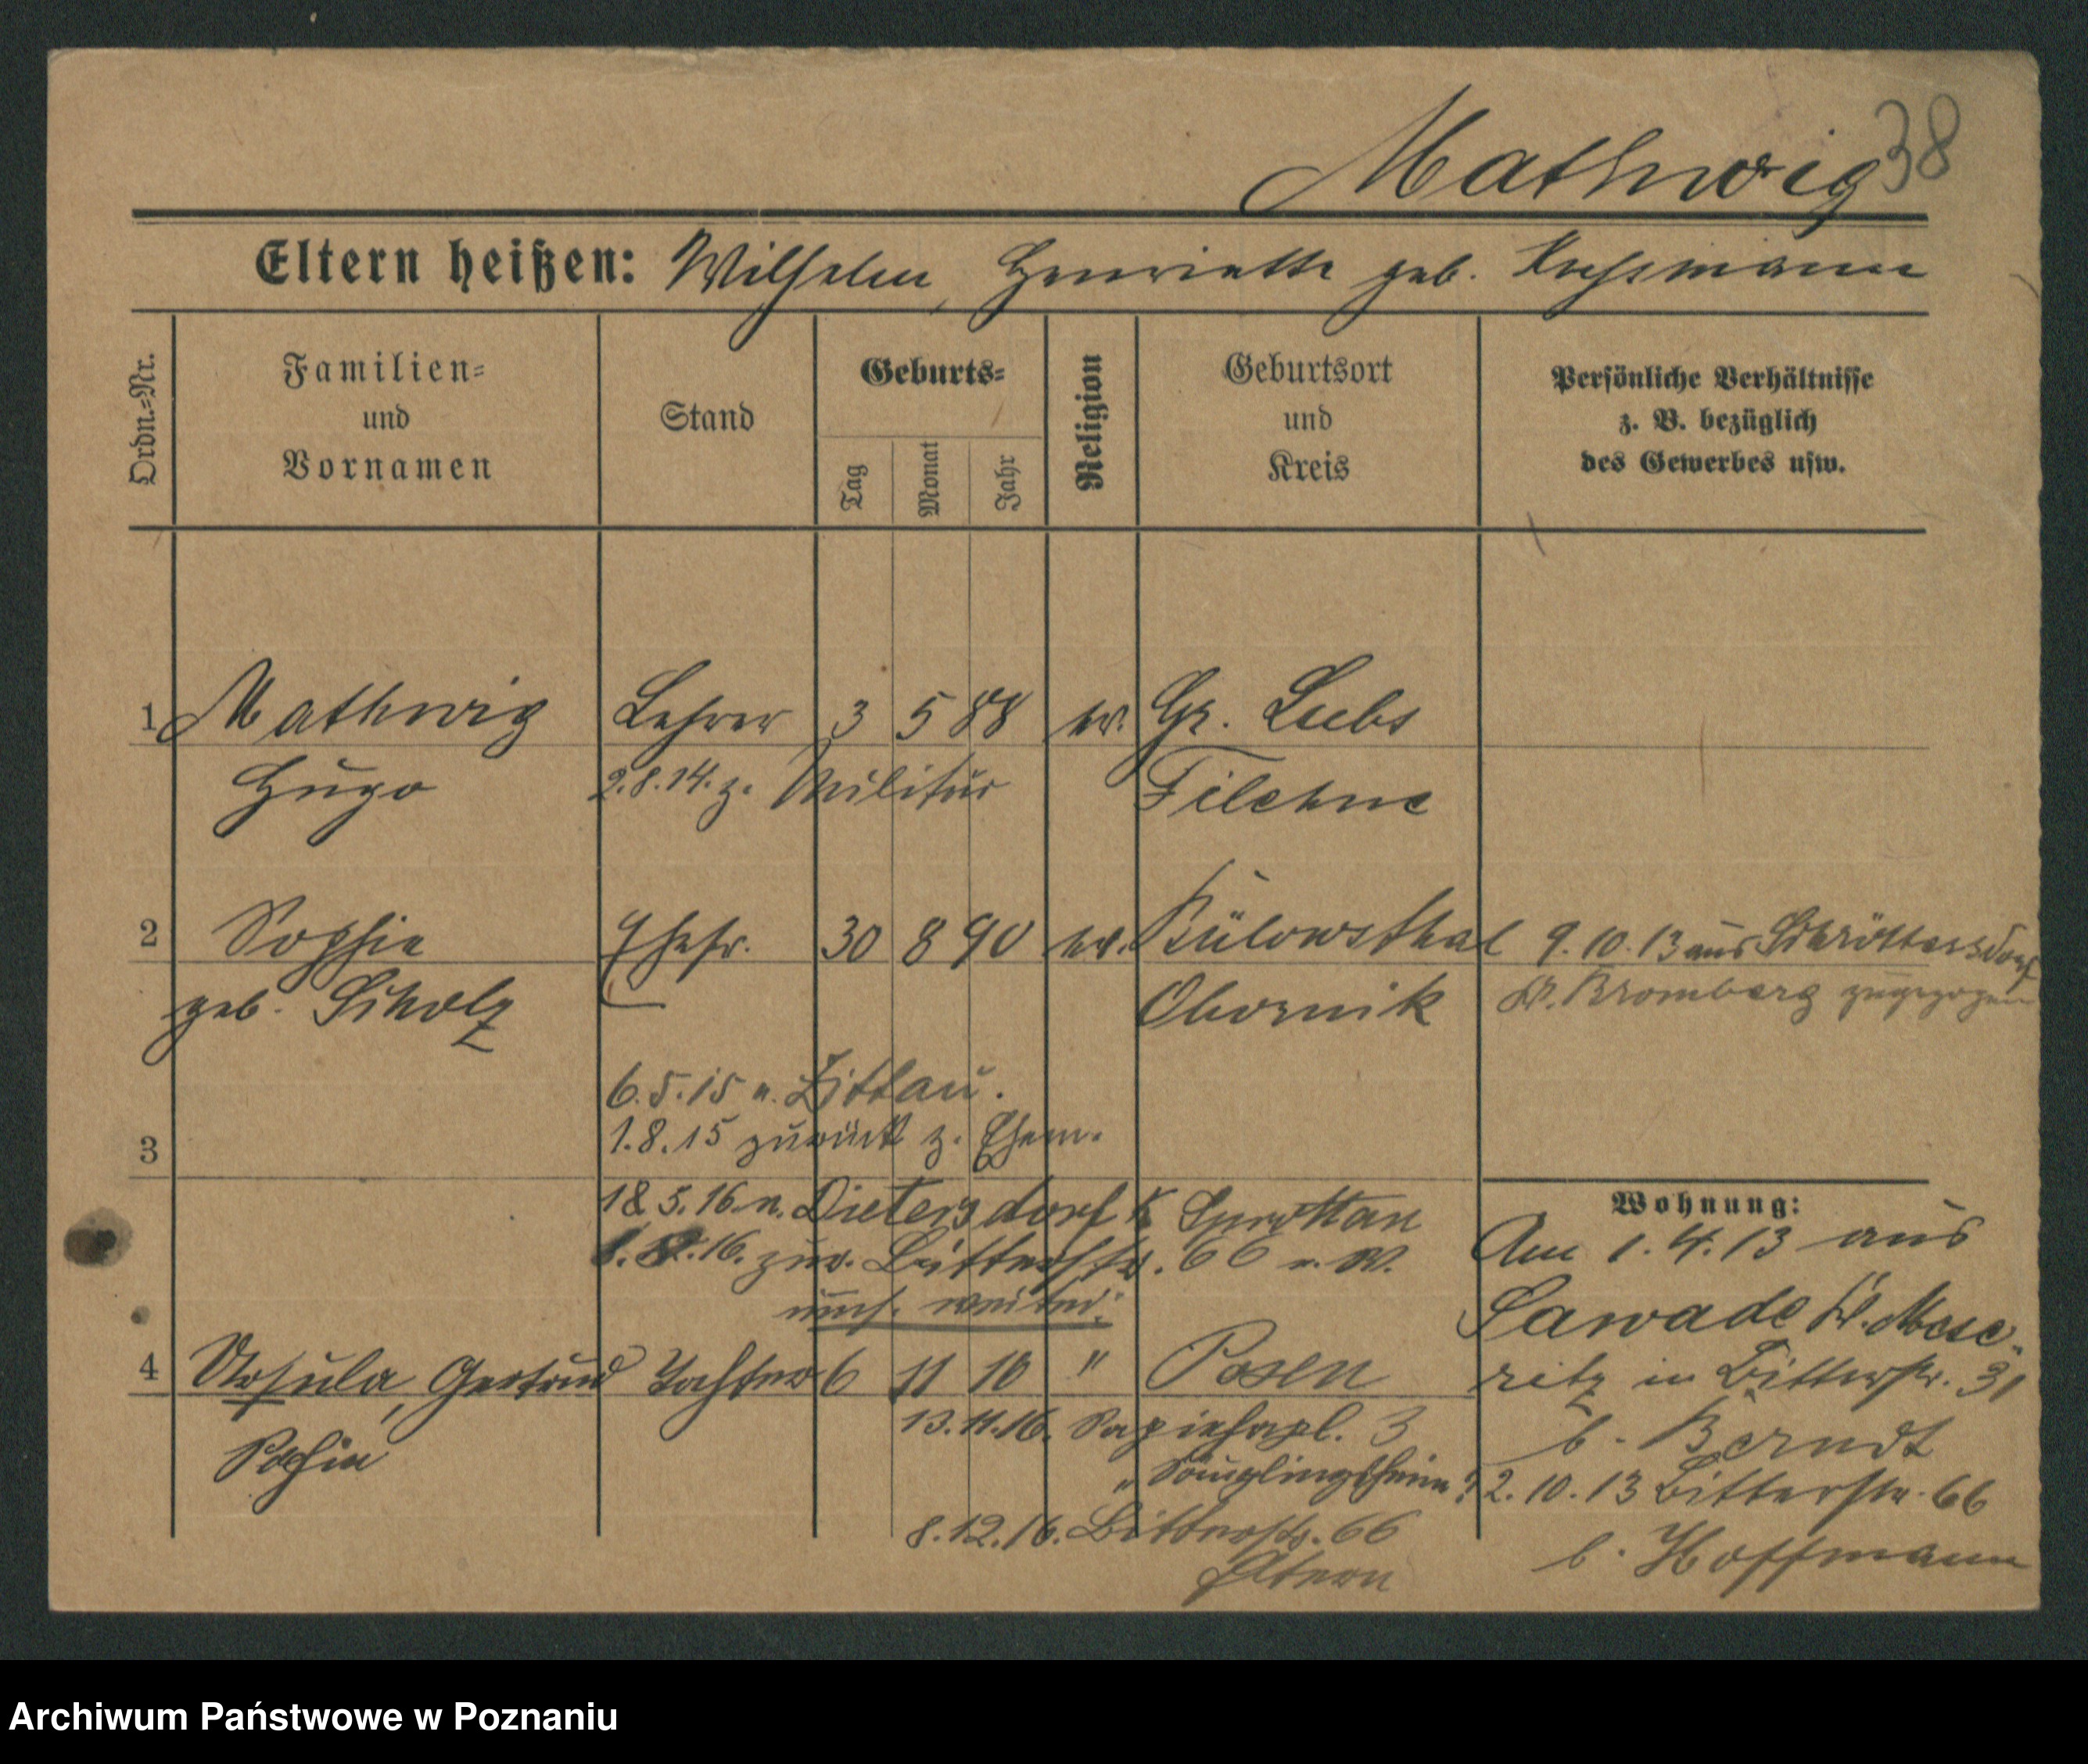 Mathwig 38
Eltern heißen: Wilhelm, Henriette geb.
Ordn.=Nr.
Familien=
und
Vornamen
Stand
Geburts=
Tag
Monat
Jahr
Religion
Geburtsort
und
Kreis
Persönliche Verhältnisse
z. B. bezüglich
des Gewerbes usw.
1 Mathwig Lehrer 3 5 88 ev. Gr. Lubs
Hugo 2.8.14. z. Militär Filehne
2 Sophie Ehefr. 30 8 90 ev. Bülowsthal 9.10.13 aus Schröttersdorf
geb. Scholz Obornik Kr. Bromberg zugezogen
6.5.15 n. Zittau.
3 1.8.15 zurück z. Ehem.
18 5.16 n. Dietersdorf K Sprottau
16. zur. Bitterstr. 66
Wohnung:
Am 1.4.13 aus
Sawade Kr. Mese-
ritz in Bitterstr. 31
b. Berndt
2.10.13 Bitterstr. 66
b. Hoffmann
4 Ursula, Gertrud Tochter 6 11 16 " Posen
Sofie 13.11.16. Sapiehapl. 3
" Säuglingsheim
8.12.16. Bitterstr. 66
Eltern
Archiwum Państwowe w Poznaniu